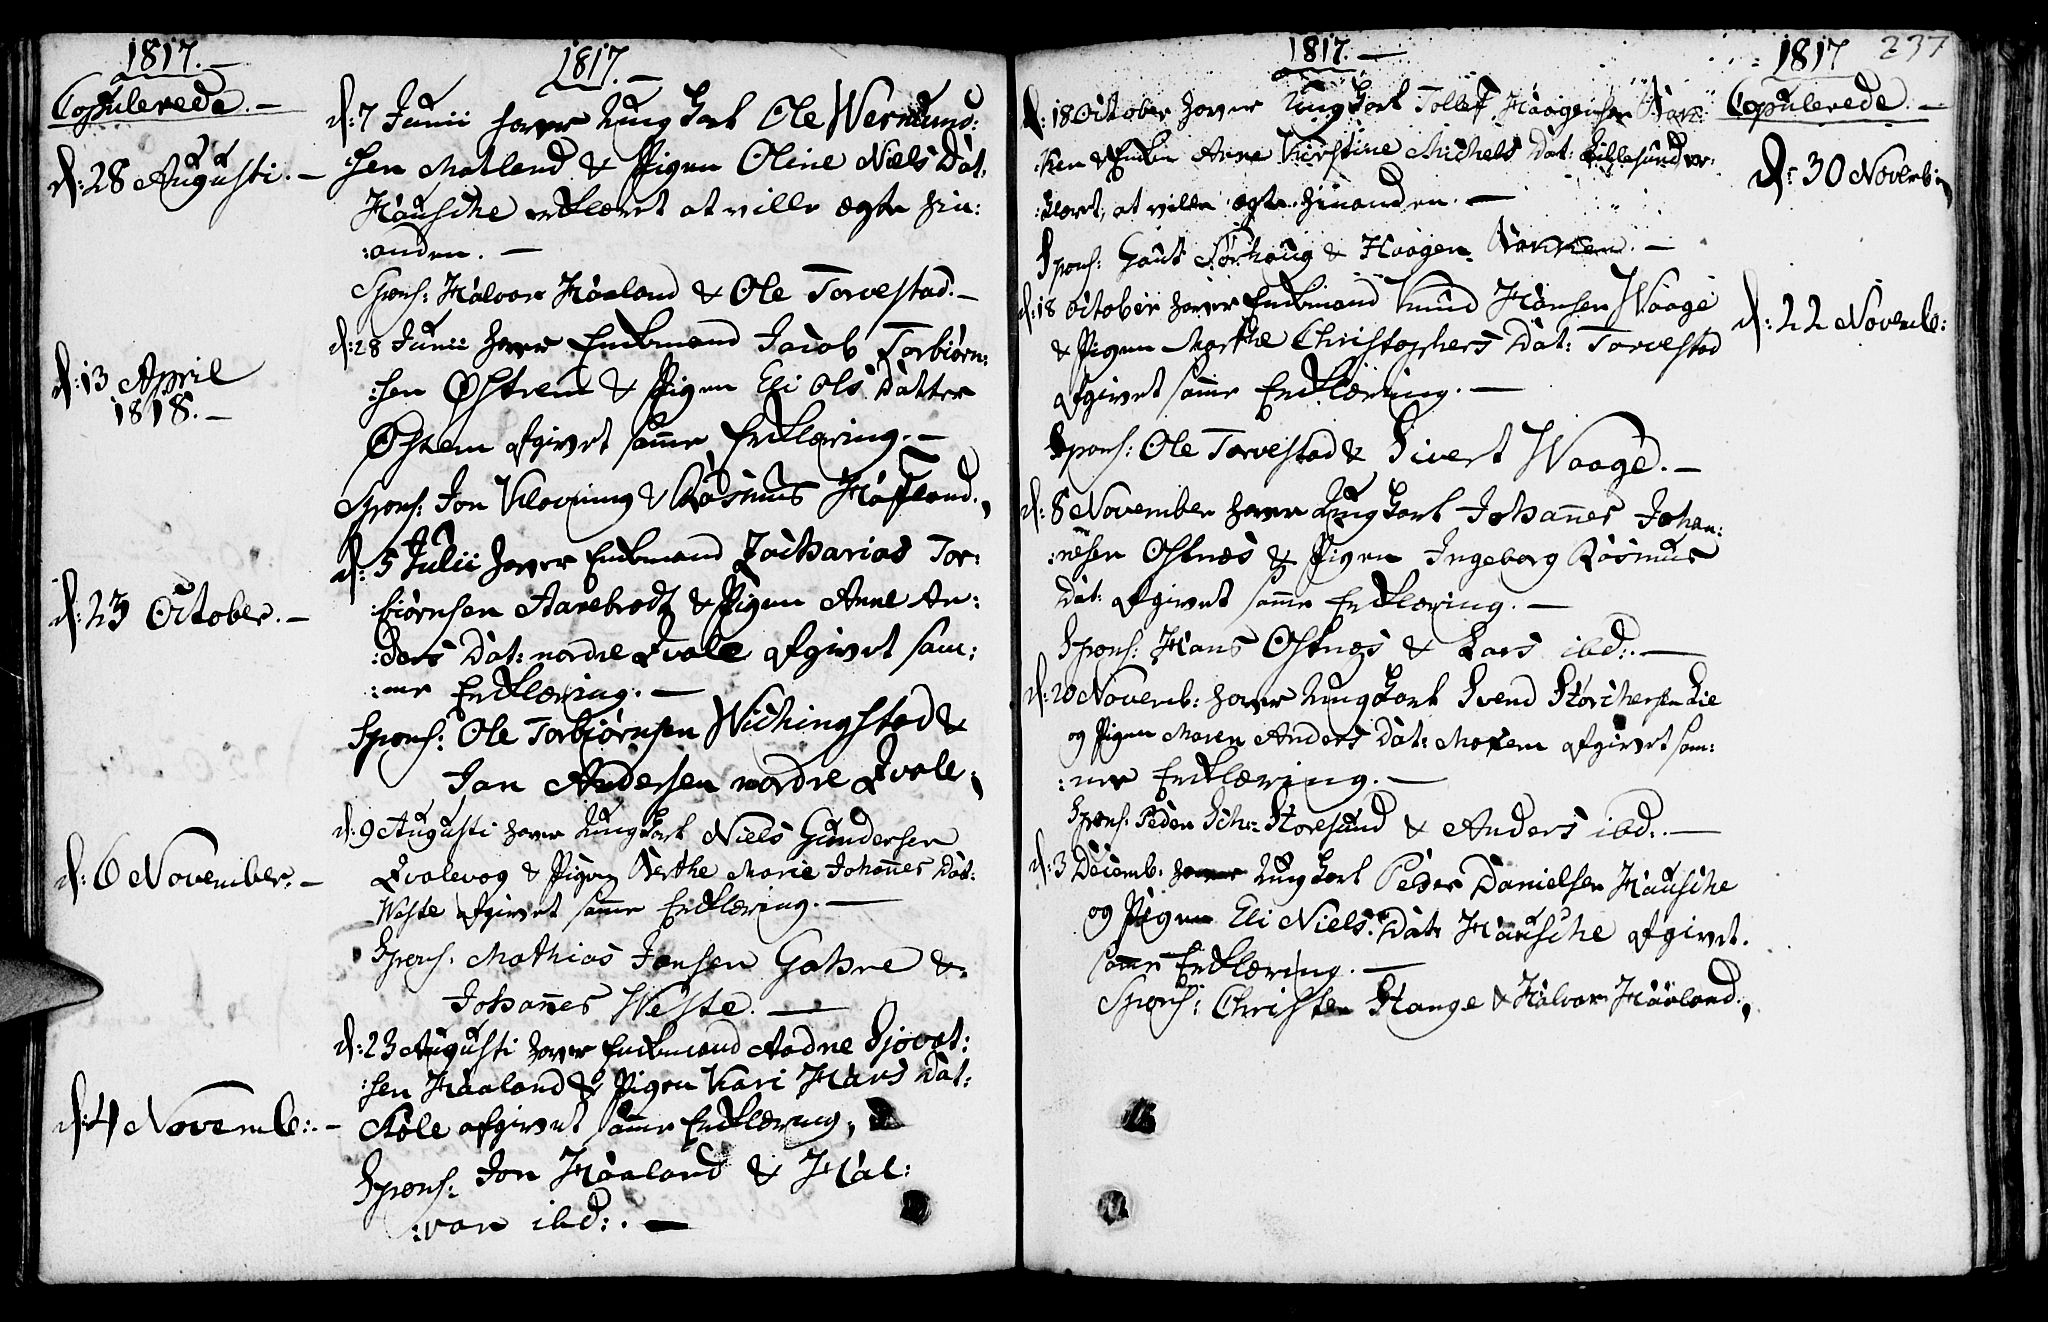 1817. —
Copulerede. —
d: 28 Augusti. —
d: 13 April
1818. —
d: 23 October. —
d: 6 November. —
d: 4 Novemb: —
1817. —
d: 7 Junii haver Ung Karl Ole Wermund:
:sen Matland & Pigen Oline Niels Dat:
Hausche erklæret at ville ægte hin:
:anden. —
Spons: Halvor Haaland & Ole Torvestad. —
d: 28 Junii haver Enkemand Jacob Torbiørn:
:sen Østrem & Pigen Eli Ols Datter
Østrem afgivet samme Erklæring. —
Spons: Jon Klovning & Rasmus Hafland.
d: 5 Julii haver Enkemand Zacharias Tor:
:biørnsen Aarebrodt & Pigen Anne An:
:ders Dat: nordre Qvale afgivet sam:
:me Erklæring. —
Spons: Ole Torbiørnsen Wichingstad &
Jan Andersen nordre Qvale.
d: 9 Augusti haver Ung Karl Niels Gundersen
Qvalevog & Pigen Berthe Marie Johannes Dat:
Weste afgivet samme Erklæring. —
Spons: Mathias Jansen Gahre &
Johannes Weste. —
d: 23 Augusti haver Enkemand Aadne Sjovat:
:sen Haaland & Pigen Kari Hans Dat:
afgivet samme Erklæring.
Spons: Jon Haaland & Hal:
:vor ibd: —
1817. —
d: 18 October haver Ung Karl Tollef Haagensen
& Anne Kirstine Michels Dat: er:
:klæret, at ville ægte hinanden. —
Spons: Gaut Sørhaug & Haagen —
d: 18 October haver Enkemand Knud Hansen Waage
& Pigen Marthe Christophers Dat: Torvestad
afgivet samme Erklæring. —
Spons: Ole Torvestad & Sivert Waage. —
d: 8 November haver Ung Karl Johannes Johan:
:nesen Osnæs & Pigen Ingeborg Rasmus
Dat: afgivet samme Erklæring. —
Spons: Hans Osnæs & Lars ibd: —
d: 20 Novemb: haver Ung Karl Svend Størchersen Lie
og Pigen Maren Anders Dat: afgivet sam:
:me Erklæring. —
Spons: Peder Storesund & Anders ibd: —
d: 3 Decemb: haver Ung Karl Peder Danielsen Hausche
og Pigen Eli Niels Dat: Hausche afgivet
samme Erklæring. —
Spons: Christen Stange & Halvor Haaland.
1817 237
Copulerede. —
d: 30 Novemb:
d: 22 Novemb: